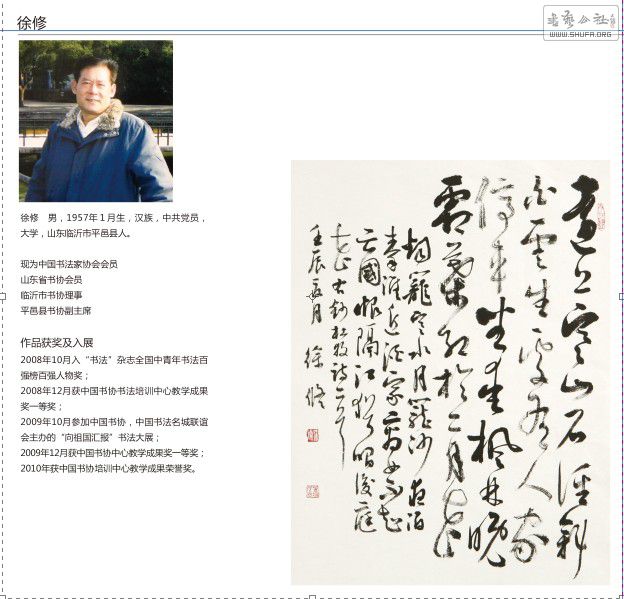 徐修
书艺公社
WWW.SHUFA.ORG
徐修 男，1957年1月生，汉族，中共党员，
大学，山东临沂市平邑县人。
现为中国书法家协会会员
山东省书协会员
临沂市书协理事
平邑县书协副主席
作品获奖及入展
2008年10月入“书法”杂志全国中青年书法百
强榜百强人物奖；
2008年12月获中国书协书法培训中心教学成果
奖一等奖；
2009年10月参加中国书协，中国书法名城联谊
会主办的“向祖国汇报”书法大展；
2009年12月获中国书协中心教学成果奖一等奖；
2010年获中国书协培训中心教学成果荣誉奖。
遠上寒山石徑斜
白雲生處有人家
停車坐愛楓林晚
霜葉紅於二月花
烟籠寒水月籠沙夜泊
秦淮近酒家商女不知
亡國恨隔江猶唱後庭
花 杜牧詩二首
壬辰 月 徐修